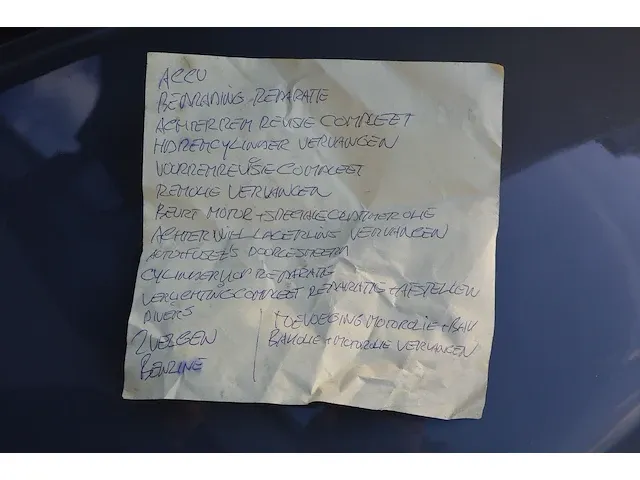 ACCU
BEDRADING REPARATIE
ACHTERREM REVISIE COMPLEET
HDREMCYLINDER VERVANGEN
VOORREMREVISIE COMPLEET
REMOLIE VERVANGEN
BEURT MOTOR + SPECIALE OLDTIMER OLIE
ACHTERWIEL LAGER LINKS VERVANGEN
AUTO + FUSEES DOORGESMEERD
CYLINDERKOP REPARATIE
VERLICHTING COMPLEET REPARATIE + AFSTELLEN
DIVERS
2 VELGEN
BENZINE
+ TOEVOEGING MOTOROLIE + BAK
BAKOLIE + MOTOROLIE VERVANGEN